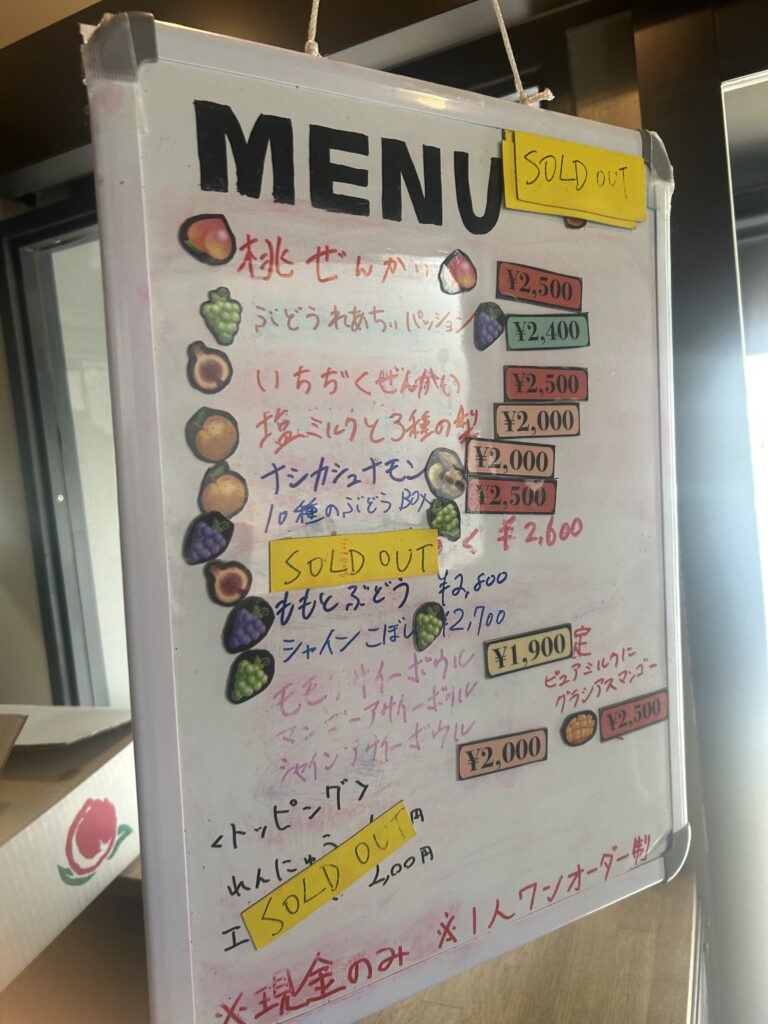 MENU
SOLD OUT
桃ぜんかい ¥2,500
ぶどうれあちぃパッション ¥2,400
いちぢくぜんかい ¥2,500
塩ミルクと3種の梨 ¥2,000
ナシカシュナモン ¥2,000
10種のぶどうBOX ¥2,500
SOLD OUT く ¥2,600
ももとぶどう ¥2,800
シャインこぼし ¥2,700
モモアサイーボウル ¥1,900 定
マンゴーアサイーボウル
シャインアサイーボウル ¥2,000
ピュアミルクに
グラシアスマンゴー
¥2,500
<トッピング>
れんにゅう 円
SOLD OUT
エ 円
※現金のみ ※1人ワンオーダー制